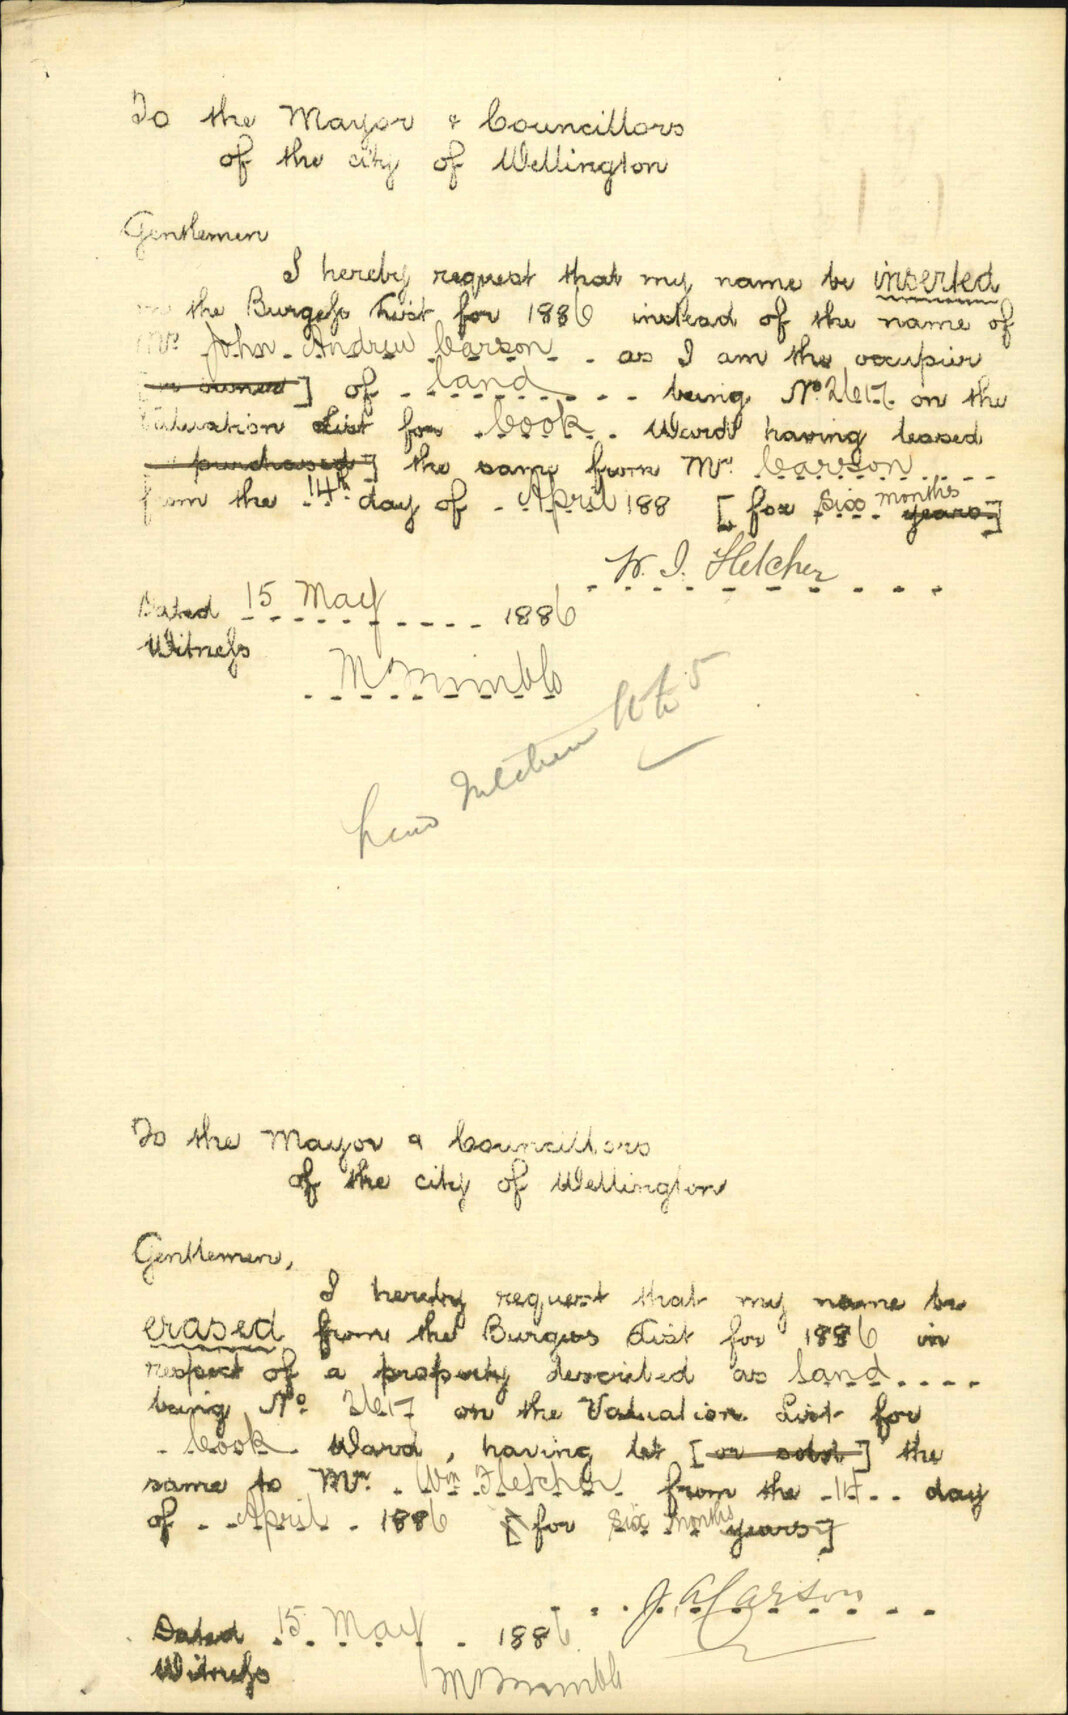 To the Mayor & Councillors
of the city of Wellington
Gentlemen
I hereby request that my name be inserted
on the Burgess List for 1886 instead of the name of
Mr John Andrew Carson as I am the occupier
[or owner] of land being No 2617 on the
Valuation List for Cook Ward having leased
[or purchased] the same from Mr. Carson
from the 14th day of April 188 [for six months years]
W. I. Fletcher
Dated 15 May 1886
Witness
To the Mayor & Councillors
of the city of Wellington
Gentlemen,
I hereby request that my name be
erased from the Burgess List for 1886 in
respect of a property described as land
being No 2617 on the Valuation List for
Cook Ward, having let [or sold] the
same to Mr. Wm Fletcher from the 14 day
of April 1886 [for six months years]
J. A. Carson
Dated 15 May 1886
Witness